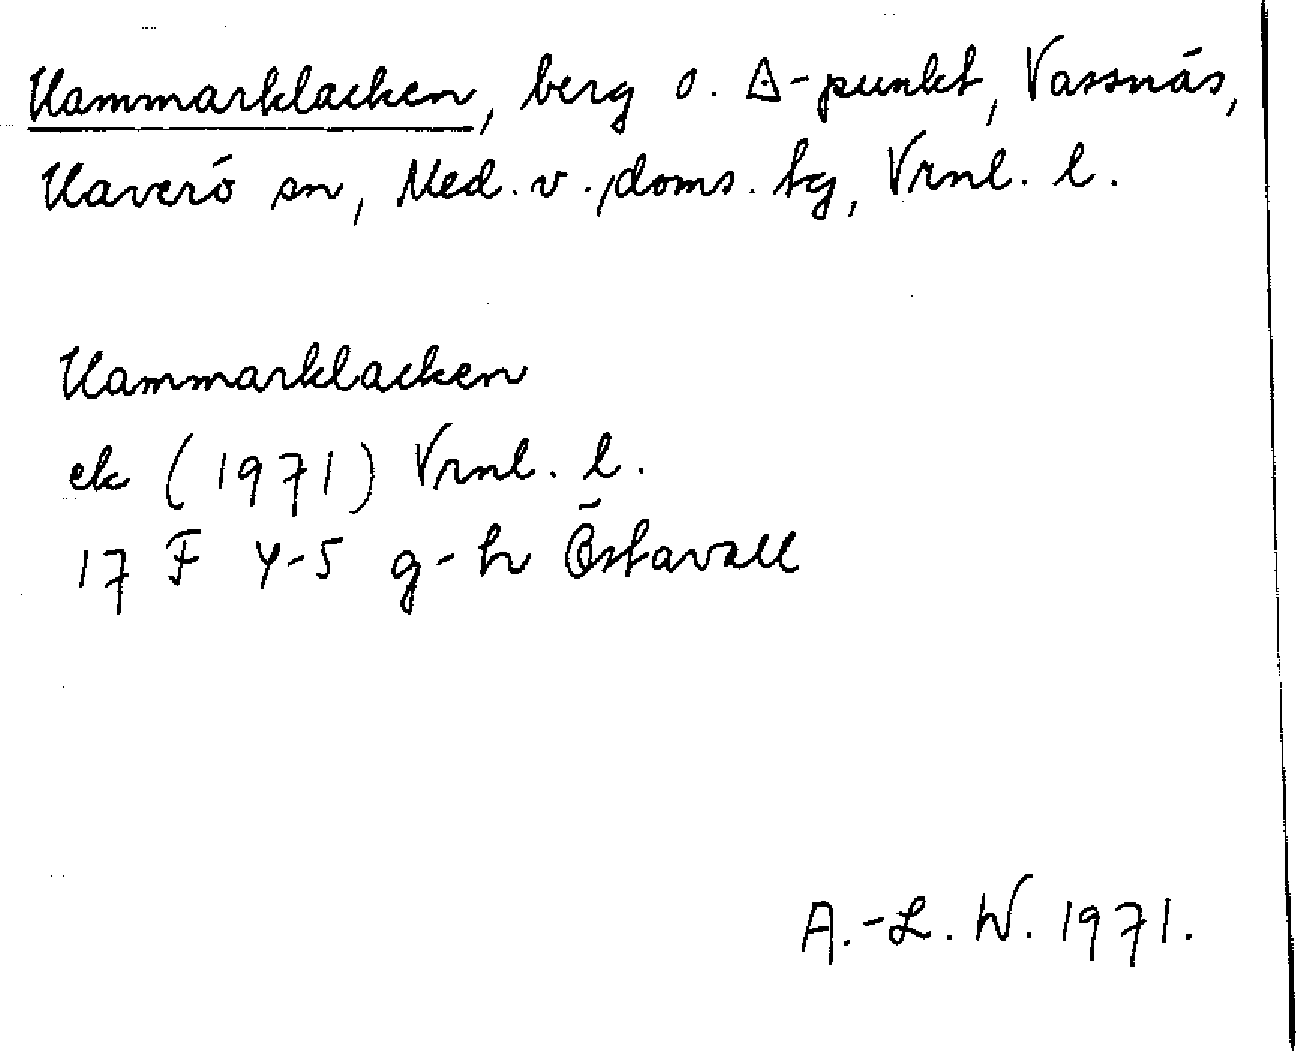 Hammarklacken, berg o. Δ-punkt, Vassnäs,
Haverö sn, Med. v. doms. tg, Vrnl. l.
Hammarklacken
ek (1971) Vrnl. l.
17 F 4-5 g-h Östavall
A.-L. W. 1971.